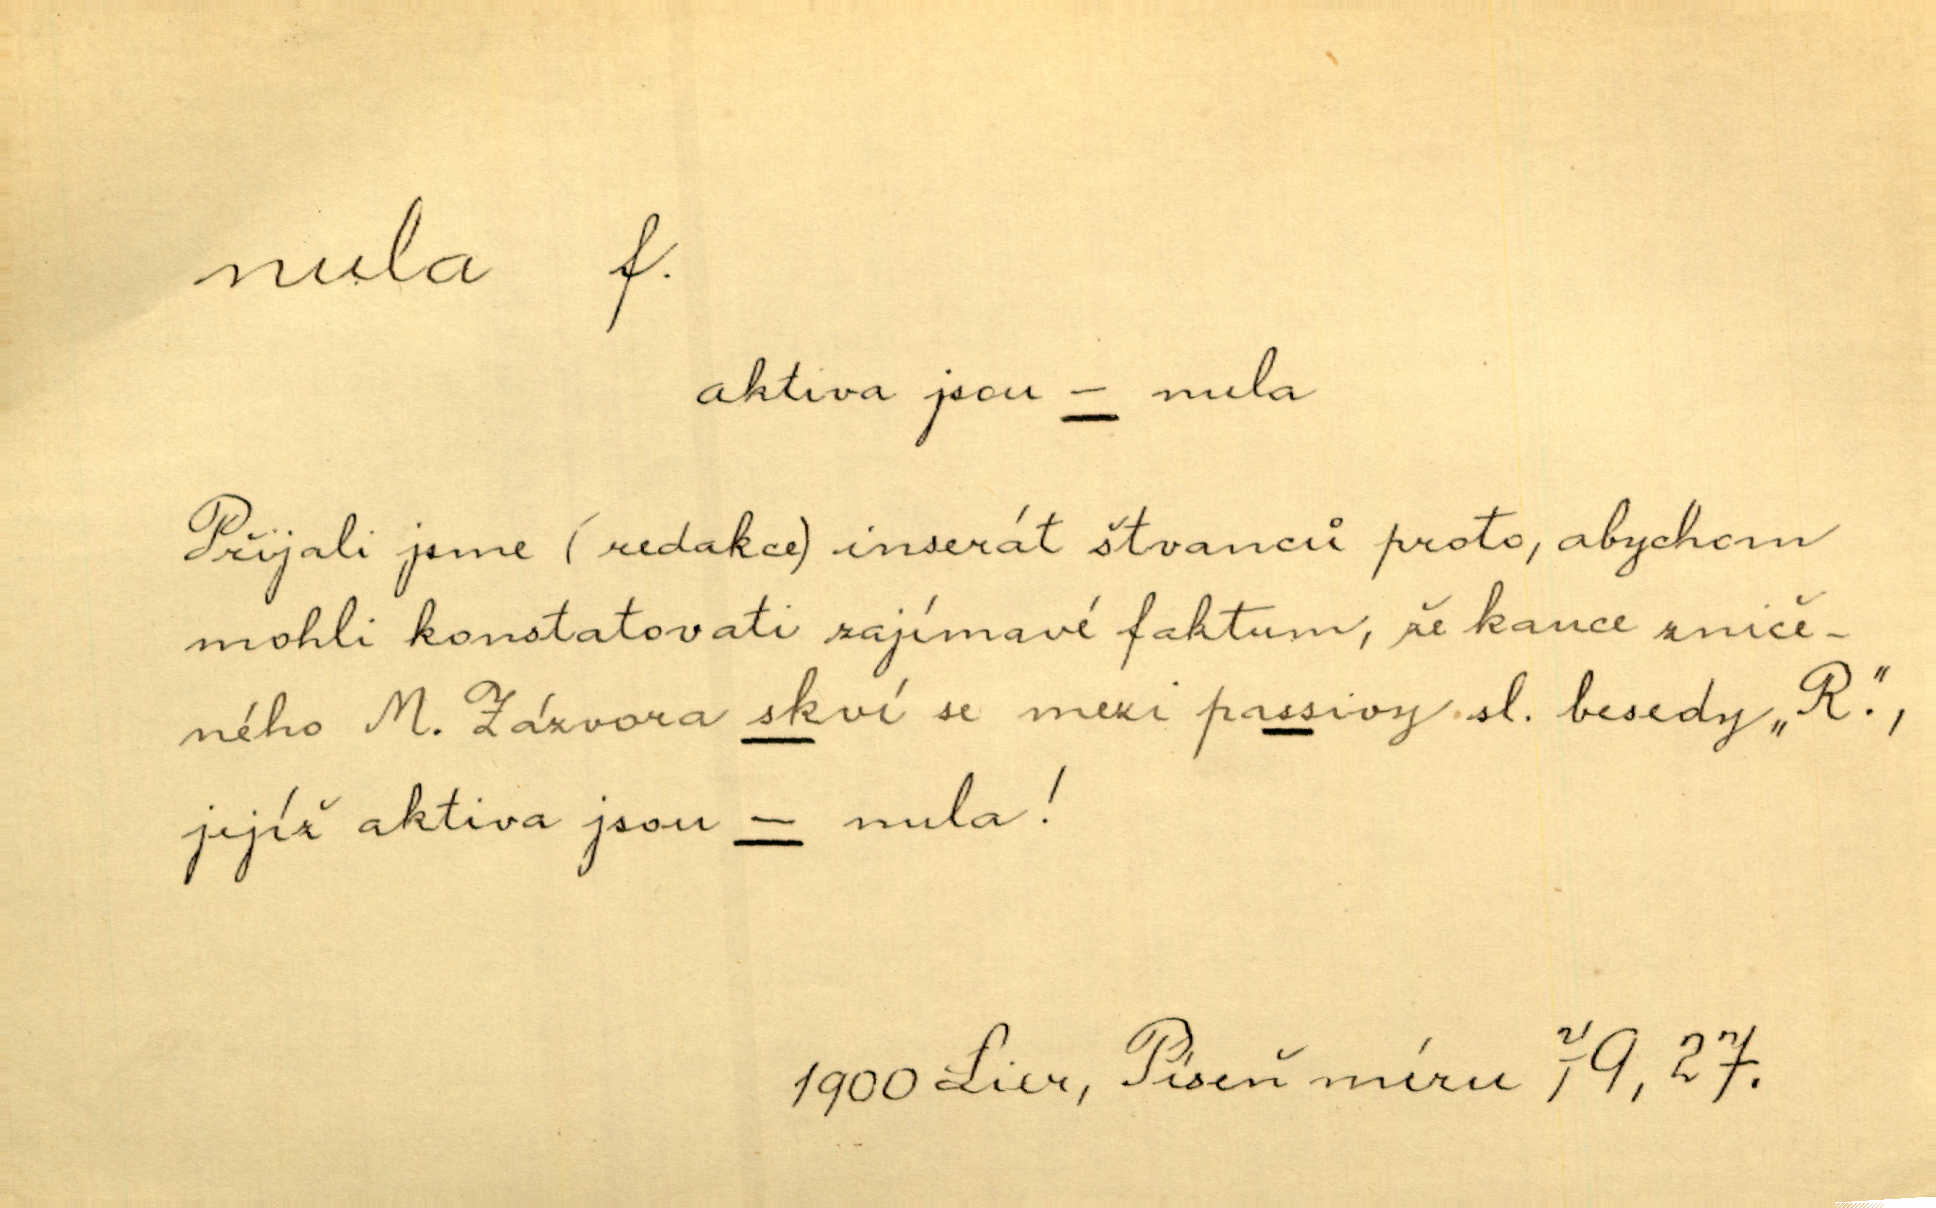 nula f.
aktiva jsou – nula
Přijali jsme (redakce) inserát štvanců proto, abychom
mohli konstatovati zajímavé faktum, že kauce zniče-
ného M. Zázvora skví se mezi passivy sl. besedy „R.“,
jejíž aktiva jsou – nula!
1900 Lier, Píseň míru 79, 27.